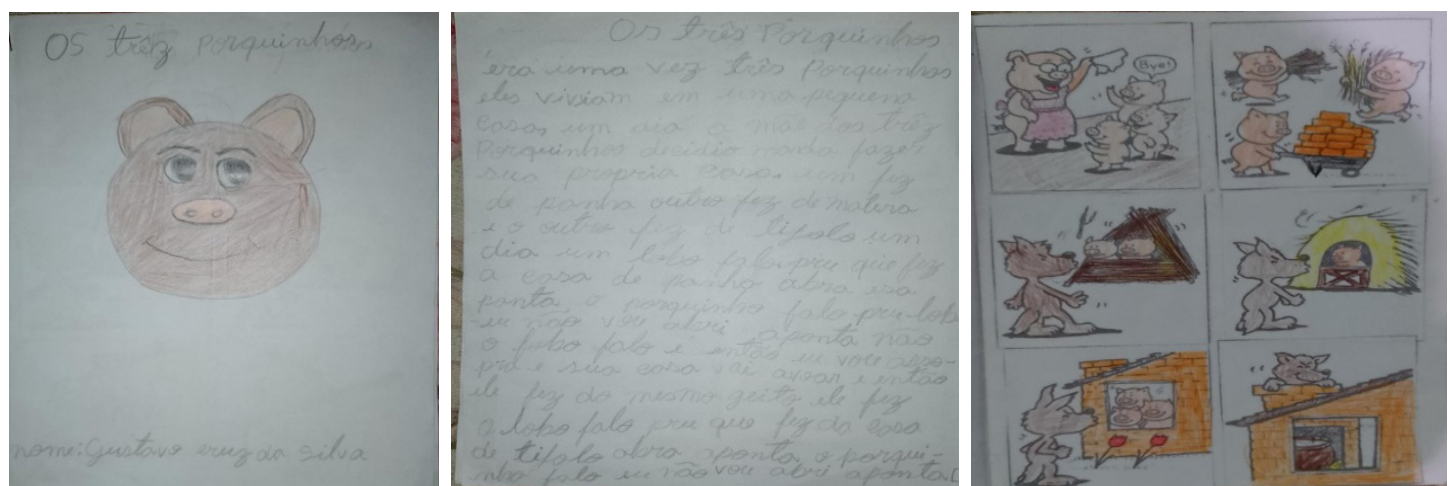 OS trêz Porquinhos
nome: Gustavo cruz da silva
Os três Porquinhos
éra uma vez três Porquinhos
eles viviam em uma pequena
casa, um dia a mãe dos trêz
Porquinhos decidio manda fazer
sua propria casa um fez
de panha outro fez de matera
e o outro fez de tifolo um
dia um lobo falo pru que fez
a casa de panha abra esa
ponta o porquinho falo pru lobo
eu não vou abri aponta não
o lobo falo é então eu vou asso-
pra e sua casa vai avoar e então
ele fez do mesmo geito ele fez
o lobo falo pru que fez da casa
de tifolo abra aponta o porqui-
nho falo eu não vou abri aponta
Bye!